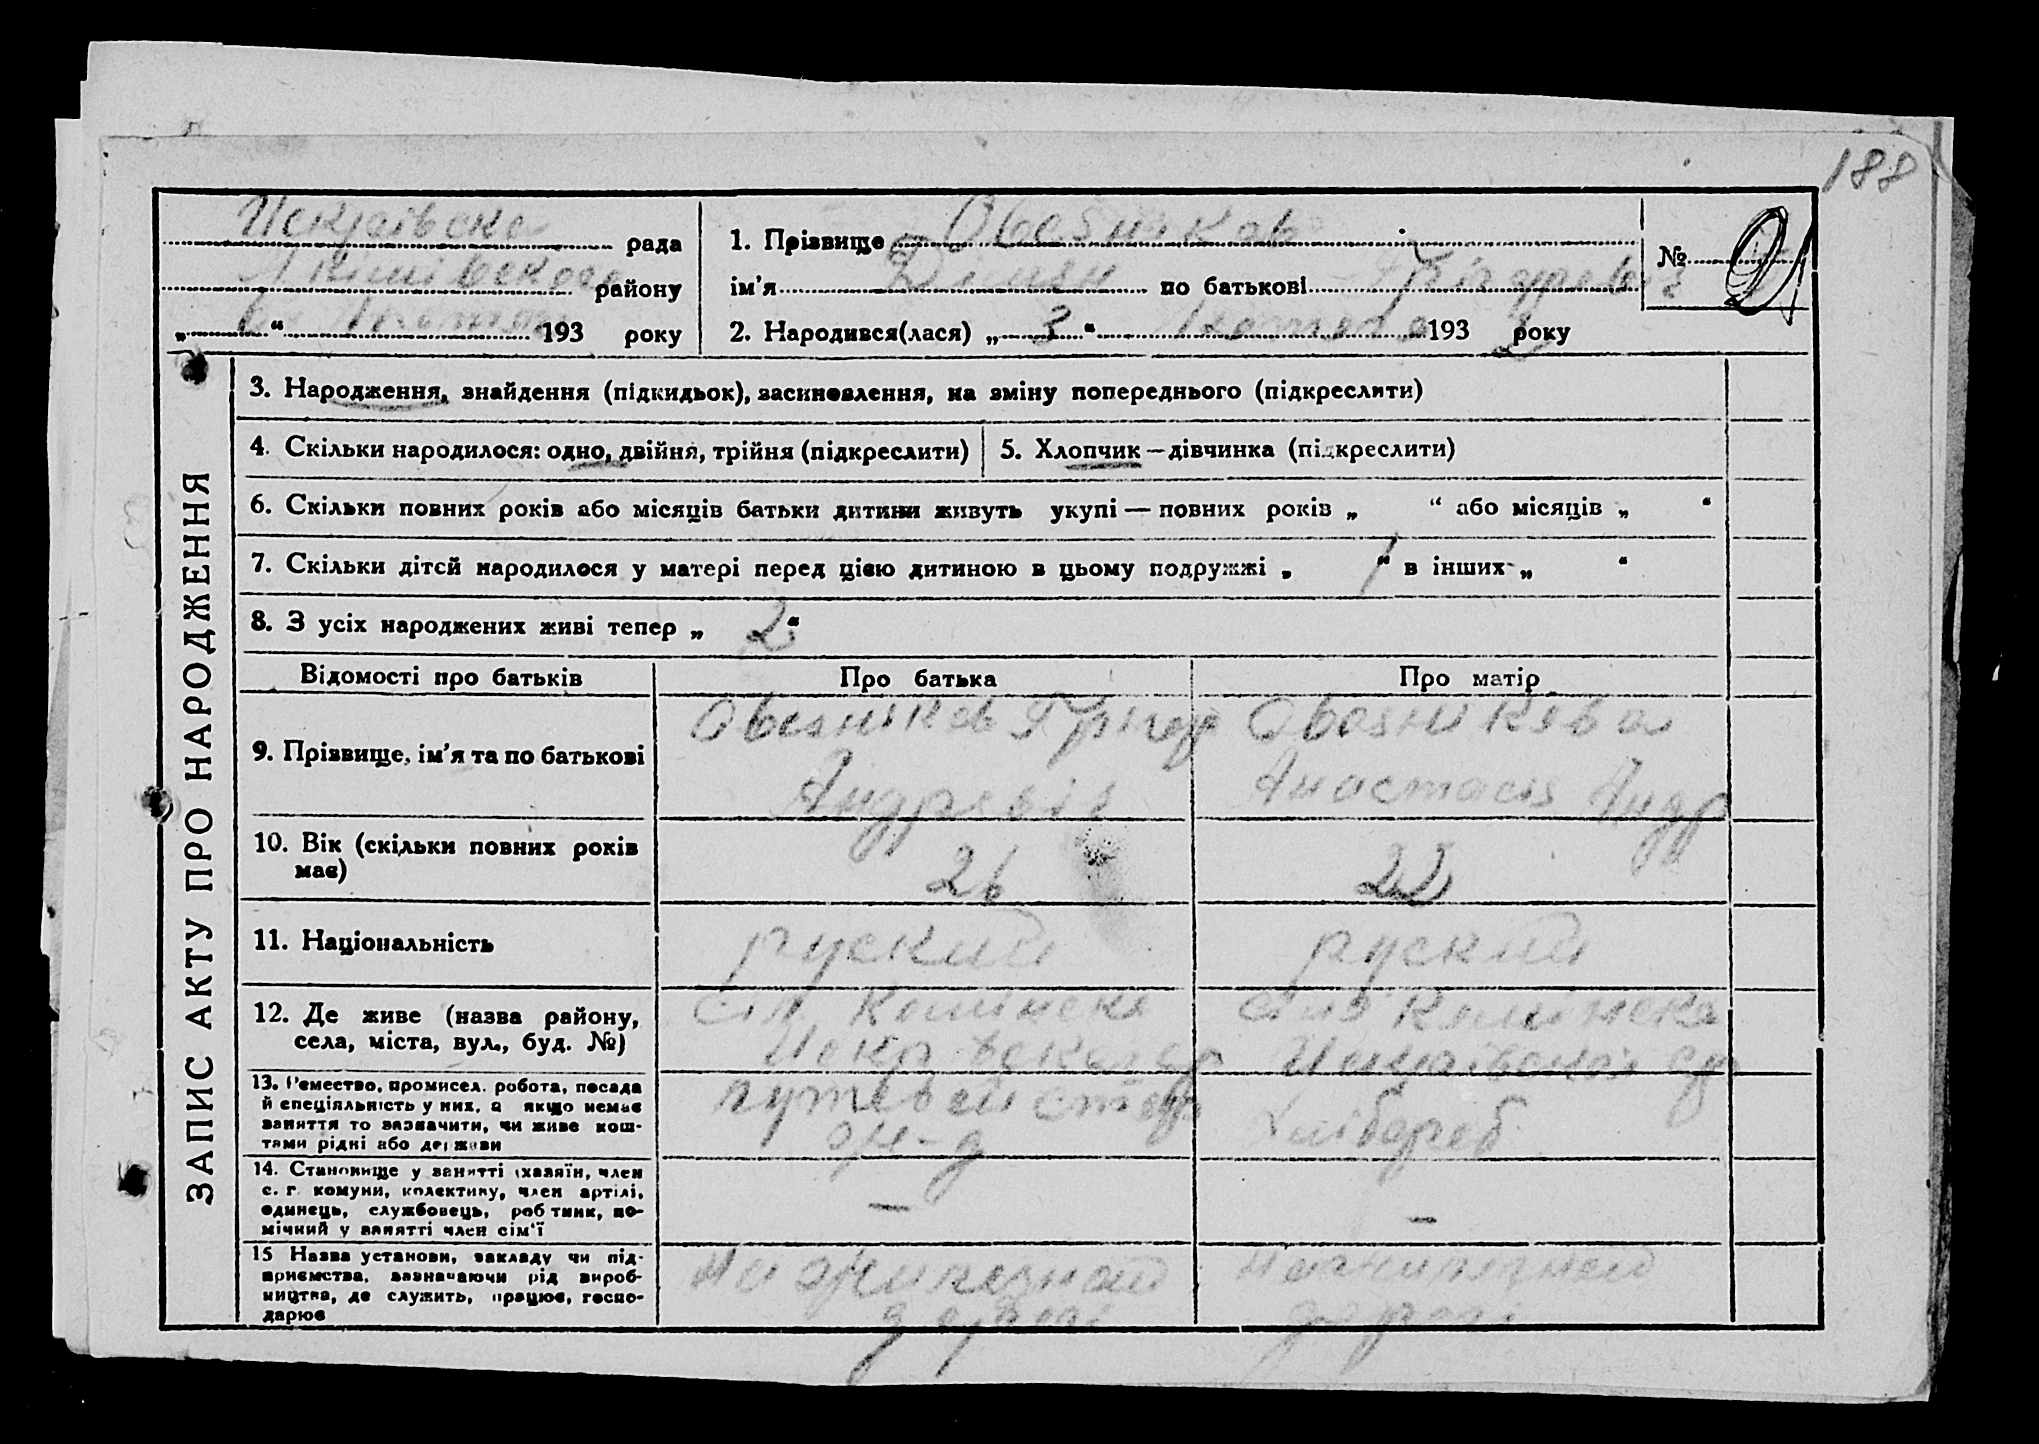 188
Іскрівська рада
району
„ 6 “ 193 року
1. Прізвище Овсяніков
ім'я Дімян по батькові Грігоревіч
№ 21
2. Народився(лася) „ 3 “ 193 2 року
3. Народження, знайдення (підкидьок), засиновлення, на зміну попереднього (підкреслити)
4. Скільки народилося: одно, двійня, трійня (підкреслити)
5. Хлопчик — дівчинка (підкреслити)
6. Скільки повних років або місяців батьки дитини живуть укупі — повних років „ “ або місяців „ “
7. Скільки дітей народилося у матері перед цією дитиною в цьому подружжі „ 1 “ в інших „ “
8. З усіх народжених живі тепер „ 2 “
ЗАПИС АКТУ ПРО НАРОДЖЕННЯ
Відомості про батьків
Про батька
Про матір
9. Прізвище, ім'я та по батькові
Овсяніков Грігор
Андревіч
Овсянікова
Анастасія Андр
10. Вік (скільки повних років
має)
26
22
11. Національність
руский
руский
12. Де живе (назва району,
села, міста, вул., буд. №)
сіло
сіло
13. Ремество, промисел, робота, посада
й спеціяльність у них, а якщо немає
заняття то зазначити, чи живе кош-
тами рідні або держави
путевой сторож
ж-д
14. Становище у занятті (хазяїн, член
с. г. комуни, колективу, член артілі,
одинець, службовець, робітник, по-
мічний у занятті член сім'ї
—
—
15 Назва установи, закладу чи під-
приємства, зазначаючи рід вироб-
ництва, де служить, працює, госпо-
дарює
На жилезной
дороги
На жилезной
дороги